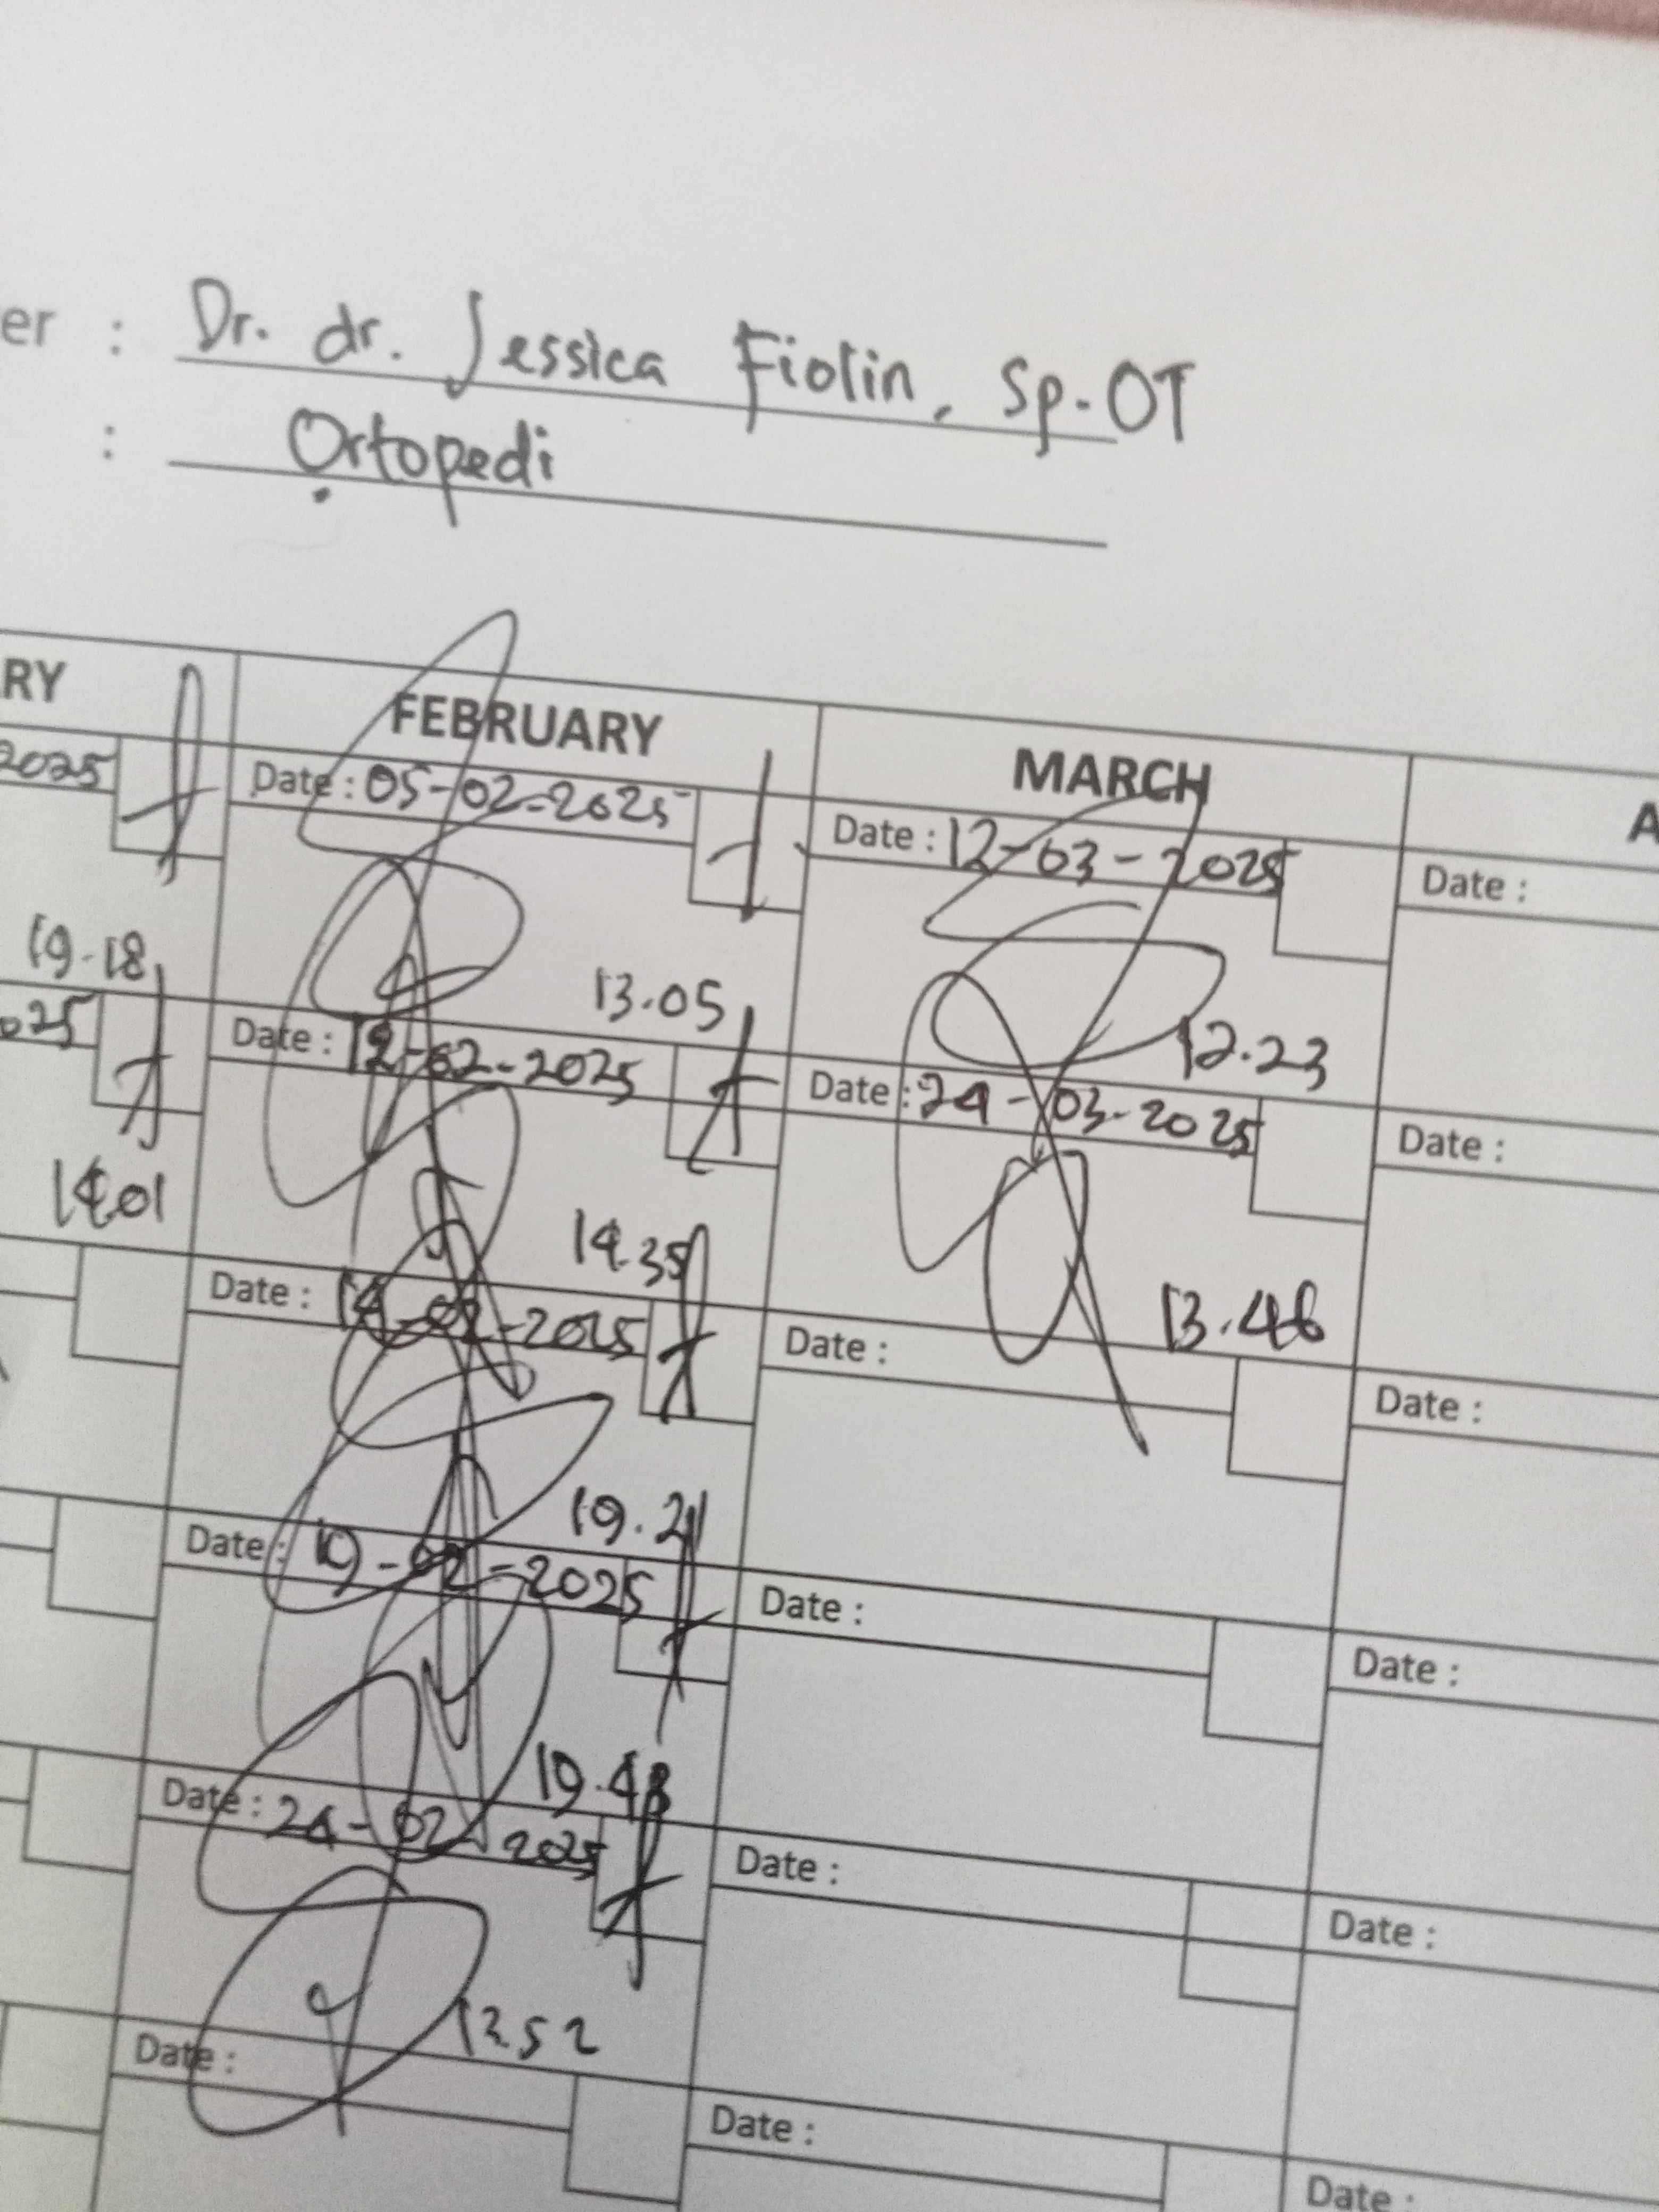 er : Dr. dr. Jessica Fiolin, Sp.OT
: Ortopedi
RY FEBRUARY MARCH A
2025 Date : 05-02-2025 Date : 12-03-2025 Date :
19.18 13.05 12.23
025 Date : 12-02-2025 Date : 24-03-2025 Date :
14.01 14.35 13.46
Date : 14-02-2025 Date : Date :
19.21
Date : 19-02-2025 Date : Date :
19.48
Date : 24-02-2025 Date : Date :
13.52
Date : Date : Date :